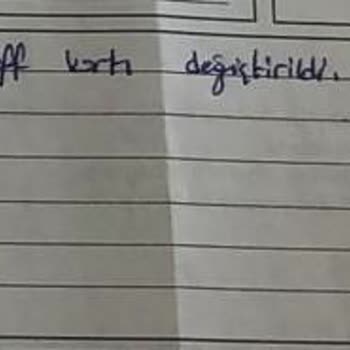 ff kartı değiştirildi.